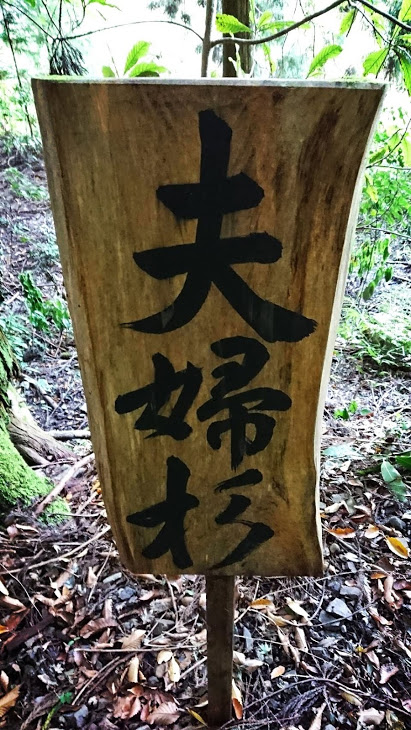 夫婦杉